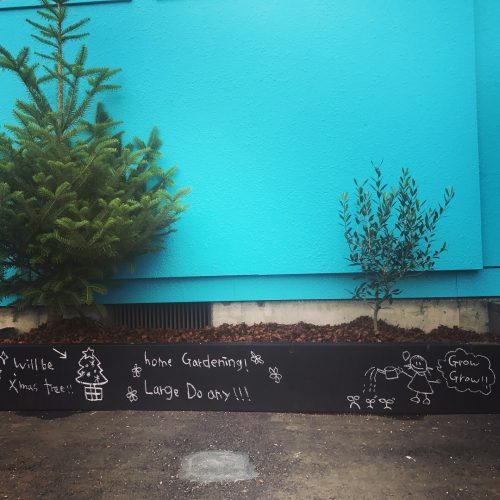 Will be
Xmas tree!!
home Gardening!
Large Do any!!!
Grow
Grow!!